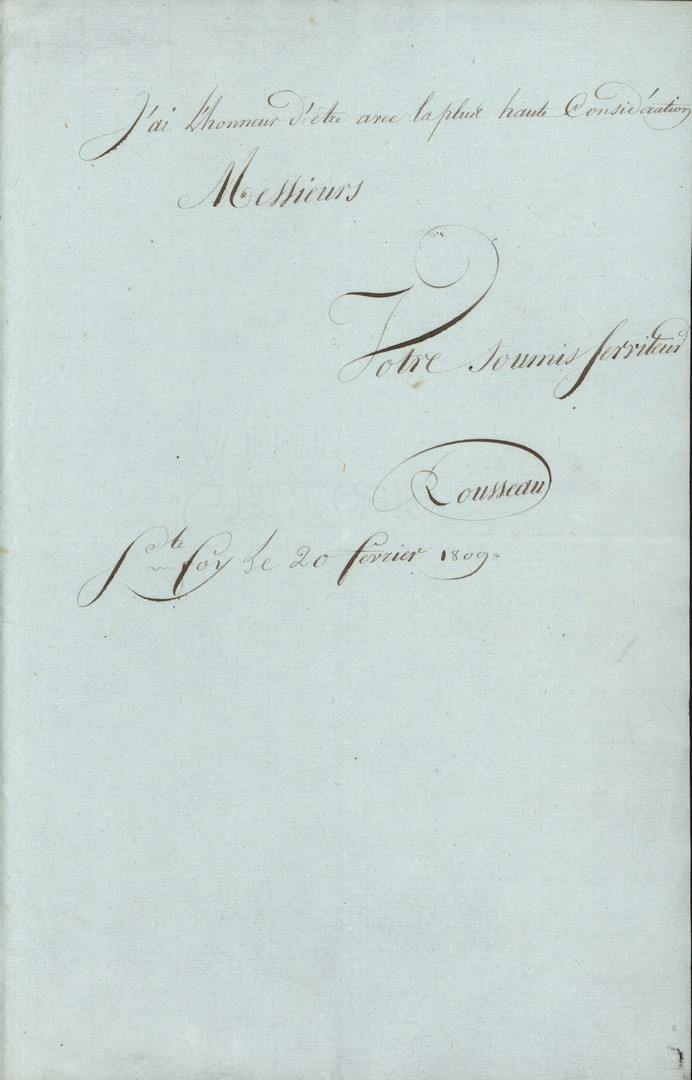 J'ai l'honneur d'être avec la plus haute Considération
Messieurs
Votre soumis serviteur
Rousseau
Ste foy le 20 février 1809=